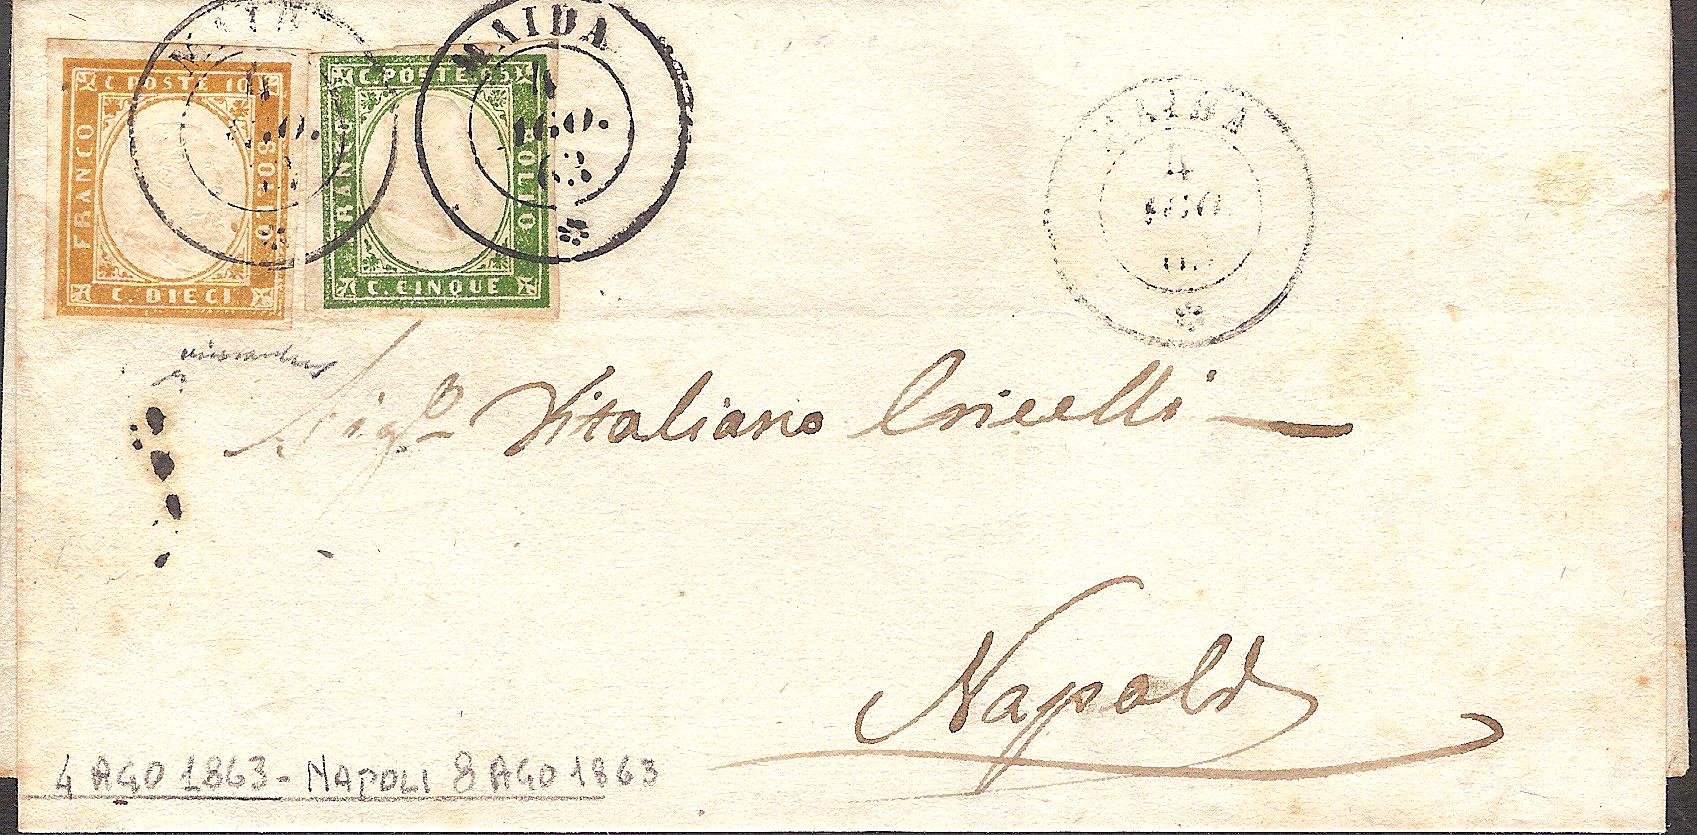 C. POSTE 10
FRANCO
BOLLO
C. DIECI
C. POSTE 5
FRANCO
BOLLO
C. CINQUE
MAIDA
4
AGO.
63
MAIDA
4
AGO
63
Sig.r Vitaliano Cricelli
Napoli
4 AGO 1863 - NAPOLI 8 AGO 1863